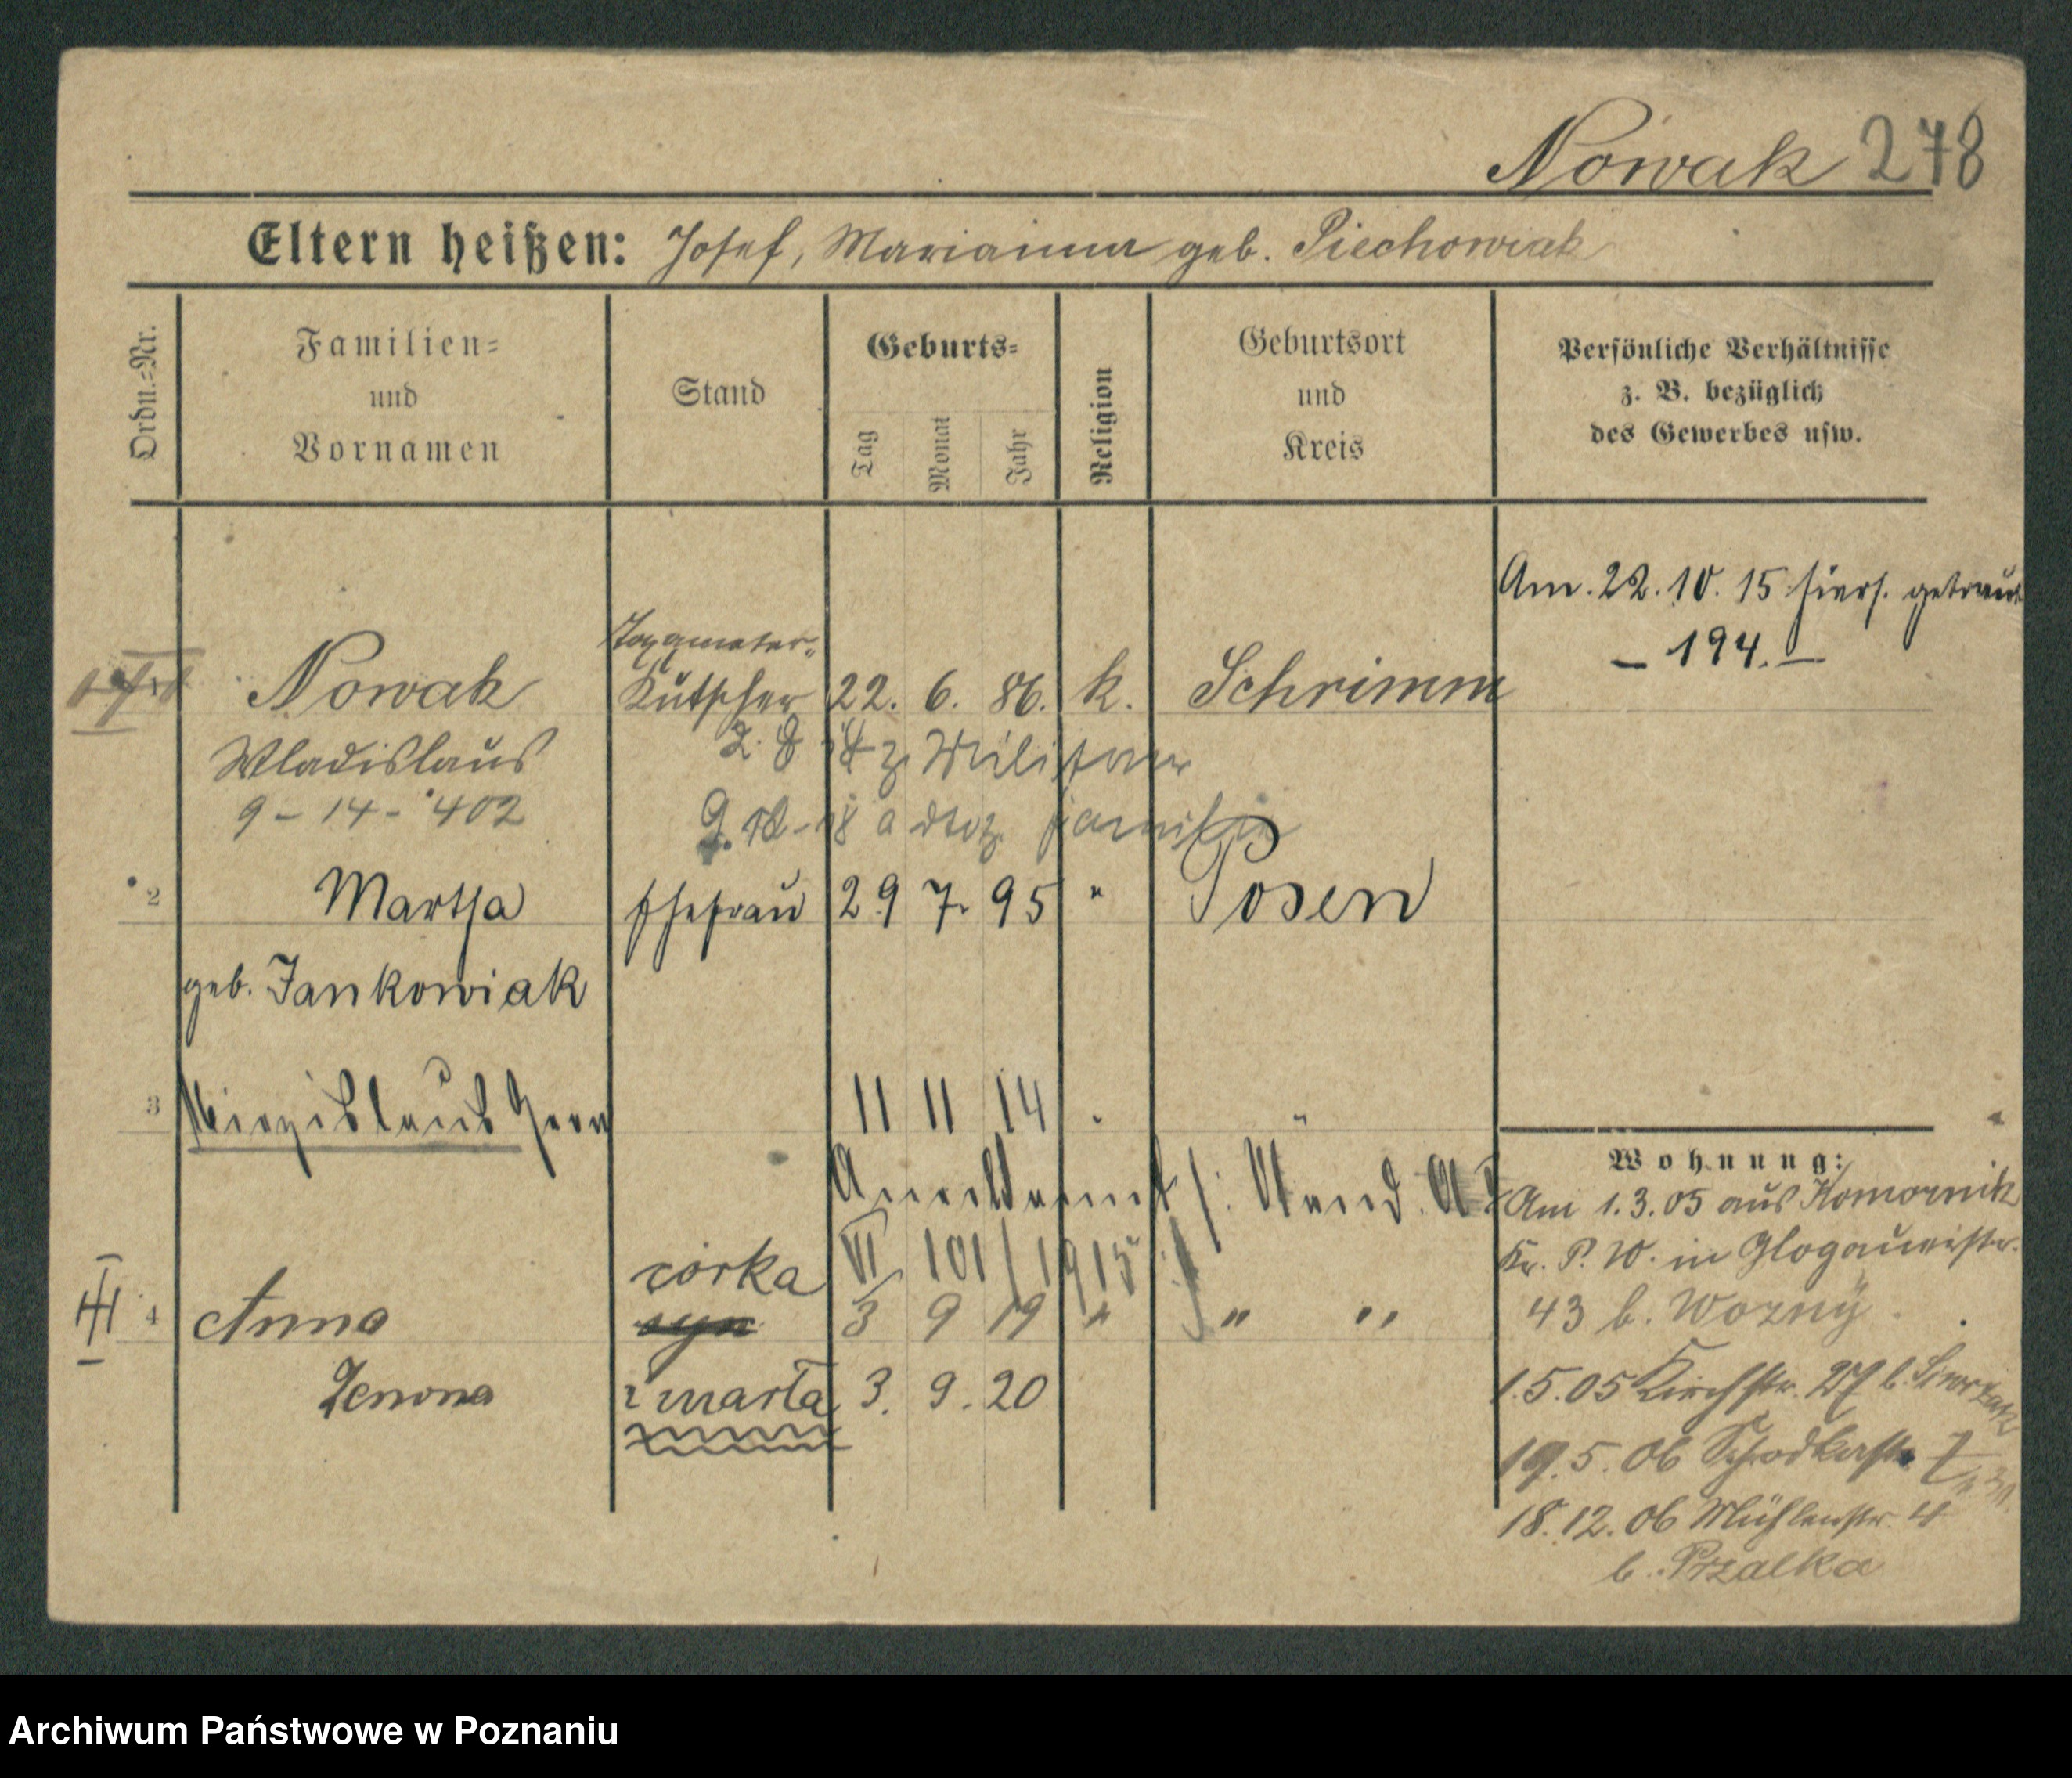 Nowak 278
Eltern heißen: Josef, Marianna geb. Piechowiak
Ordn.=Nr.
Familien=
und
Vornamen
Stand
Geburts=
Tag
Monat
Jahr
Religion
Geburtsort
und
Kreis
Persönliche Verhältnisse
z. B. bezüglich
des Gewerbes usw.
Am 22. 10. 15 hiers. getraut
– 194. –
Taxameter=
Nowak Kutscher 22. 6. 86. k. Schrimm
Wladislaus
Militär
9 – 14 – 402
2 Martha Ehefrau 29 7. 95 " Posen
geb. Jankowiak
3 11 11 14 " "
VI 101/1915
córka
4 Anna syn 3 9 19 " " "
Zenona zmarła 3. 9. 20
Wohnung:
Am 1.3.05 aus Komornik
Kr. P. W. in Glogauerstr.
43 b. Wozny
1.5.05 Kirchstr. 27 b.
19.5.06 Schrodkastr. 7
18.12.06 Mühlenstr. 4
b. Przalka
Archiwum Państwowe w Poznaniu